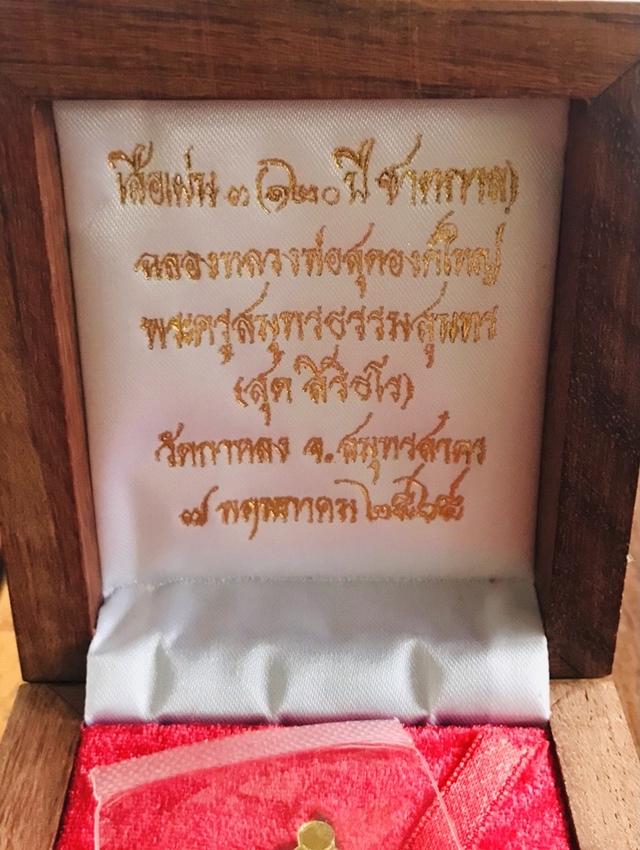 เสือเผ่น ๓ (๑๒๐ ปี ชาตกาล)
ฉลองหลวงพ่อสุดองค์ใหญ่
พระครูสมุทรธรรมสุนทร
(สุด สิริธโร)
วัดกาหลง จ.สมุทรสาคร
๗ พฤษภาคม ๒๕๖๕